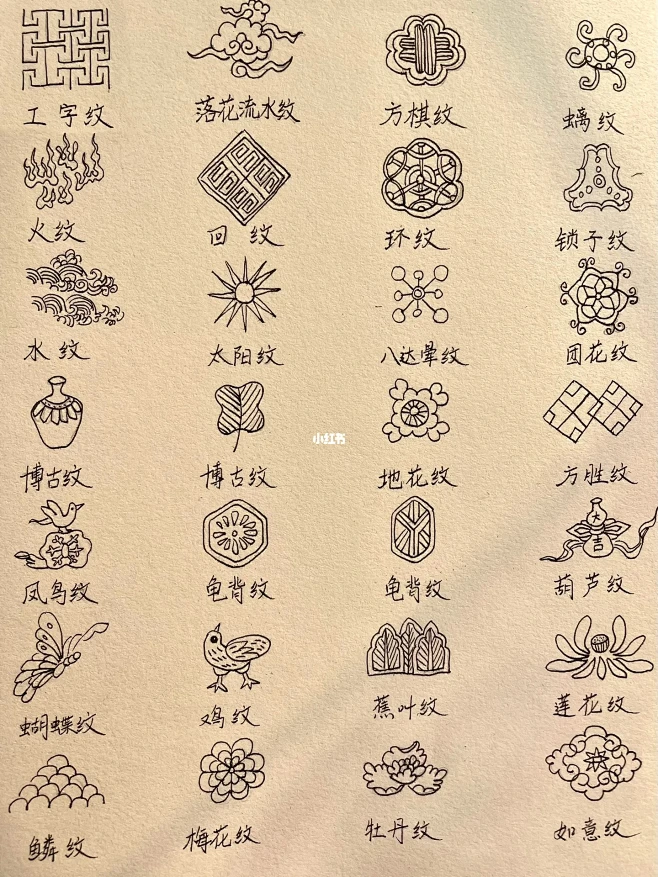 工字纹
落花流水纹
方棋纹
螭纹
火纹
回纹
环纹
锁子纹
水纹
太阳纹
八达晕纹
团花纹
小红书
博古纹
博古纹
地花纹
方胜纹
大吉
凤鸟纹
龟背纹
龟背纹
葫芦纹
蝴蝶纹
鸡纹
蕉叶纹
莲花纹
鳞纹
梅花纹
牡丹纹
如意纹